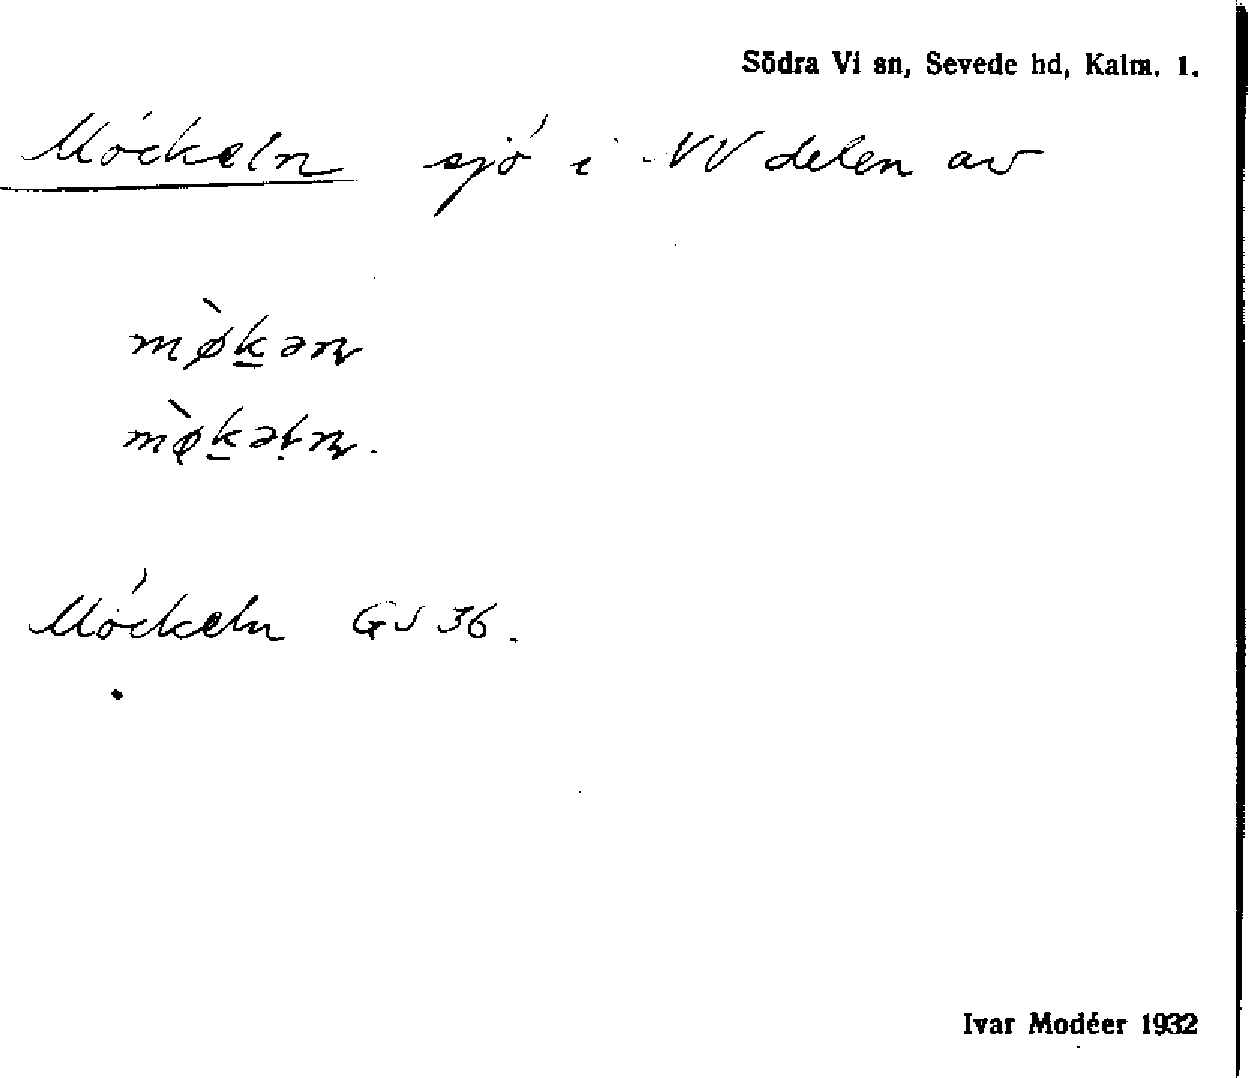 Södra Vi sn, Sevede hd, Kalm. l.
Möckeln sjö i NV delen av
mø̀kən
mø̀kəln.
Möckeln GS 36.
Ivar Modéer 1932